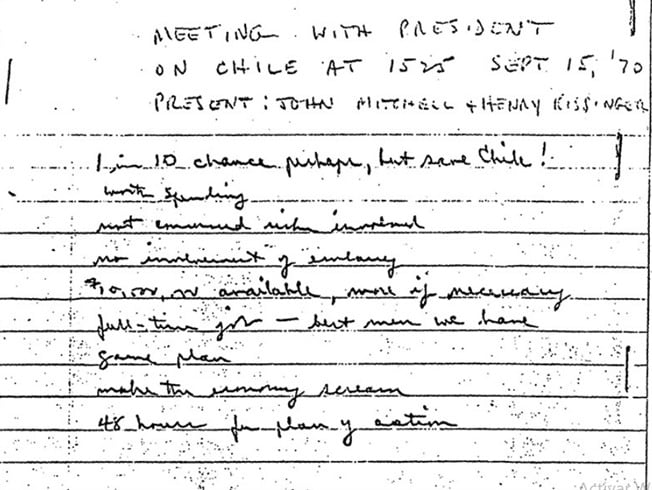 MEETING WITH PRESIDENT
ON CHILE AT 1525 SEPT 15, '70
PRESENT: JOHN MITCHELL + HENRY KISSINGER
1 in 10 chance perhaps, but save Chile!
worth spending
not concerned risks involved
no involvement of embassy
$10,000,00 available, more if necessary
full-time job — best men we have
game plan
make the economy scream
48 hours for plan of action